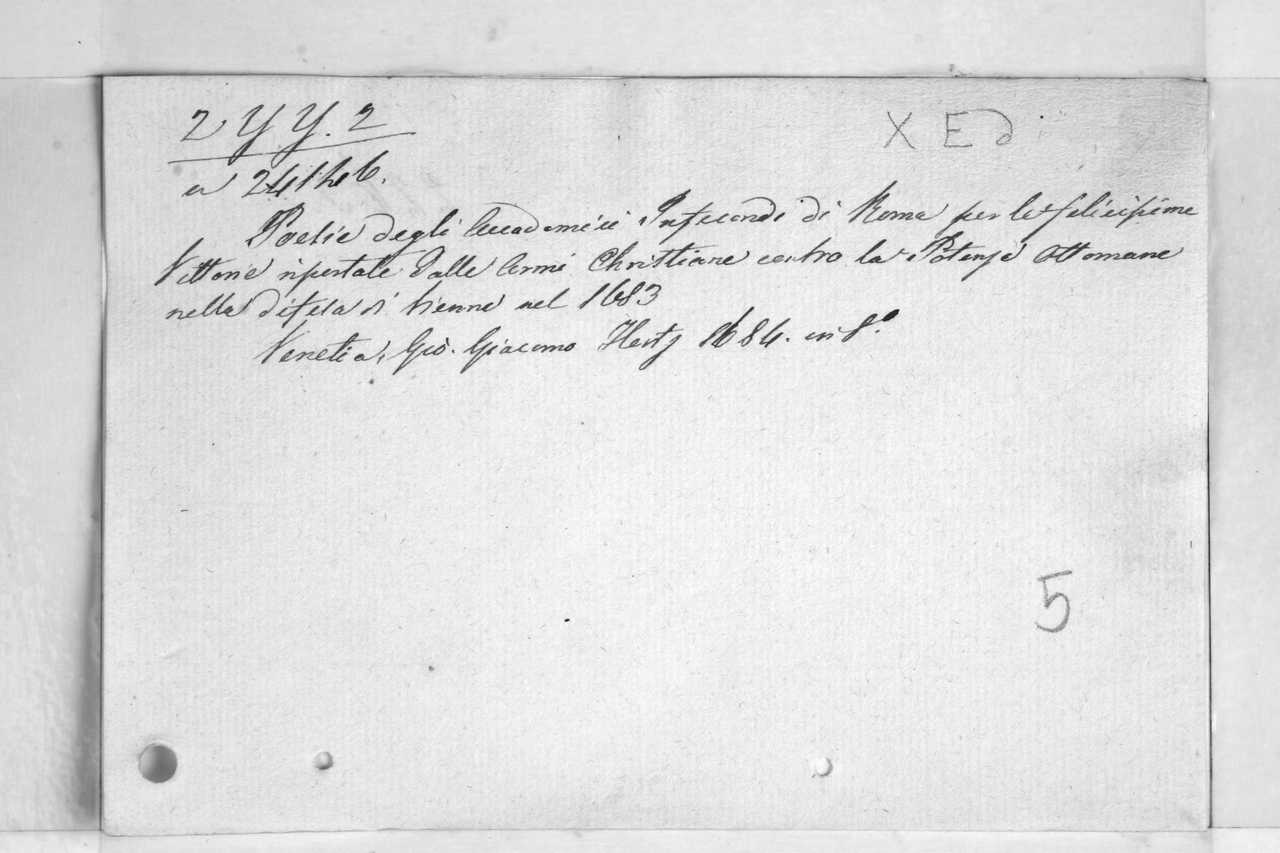 2 Y Y. 2
X E d
Poesie degli Accademici Infecondi di Roma per le felicissime
Vittorie riportate dalle Armi Christiane contro la Potenza Ottomane
nella difesa di Vienna nel 1683
Venetia, Gio. Giacomo Hertz 1684. in 8.º
5